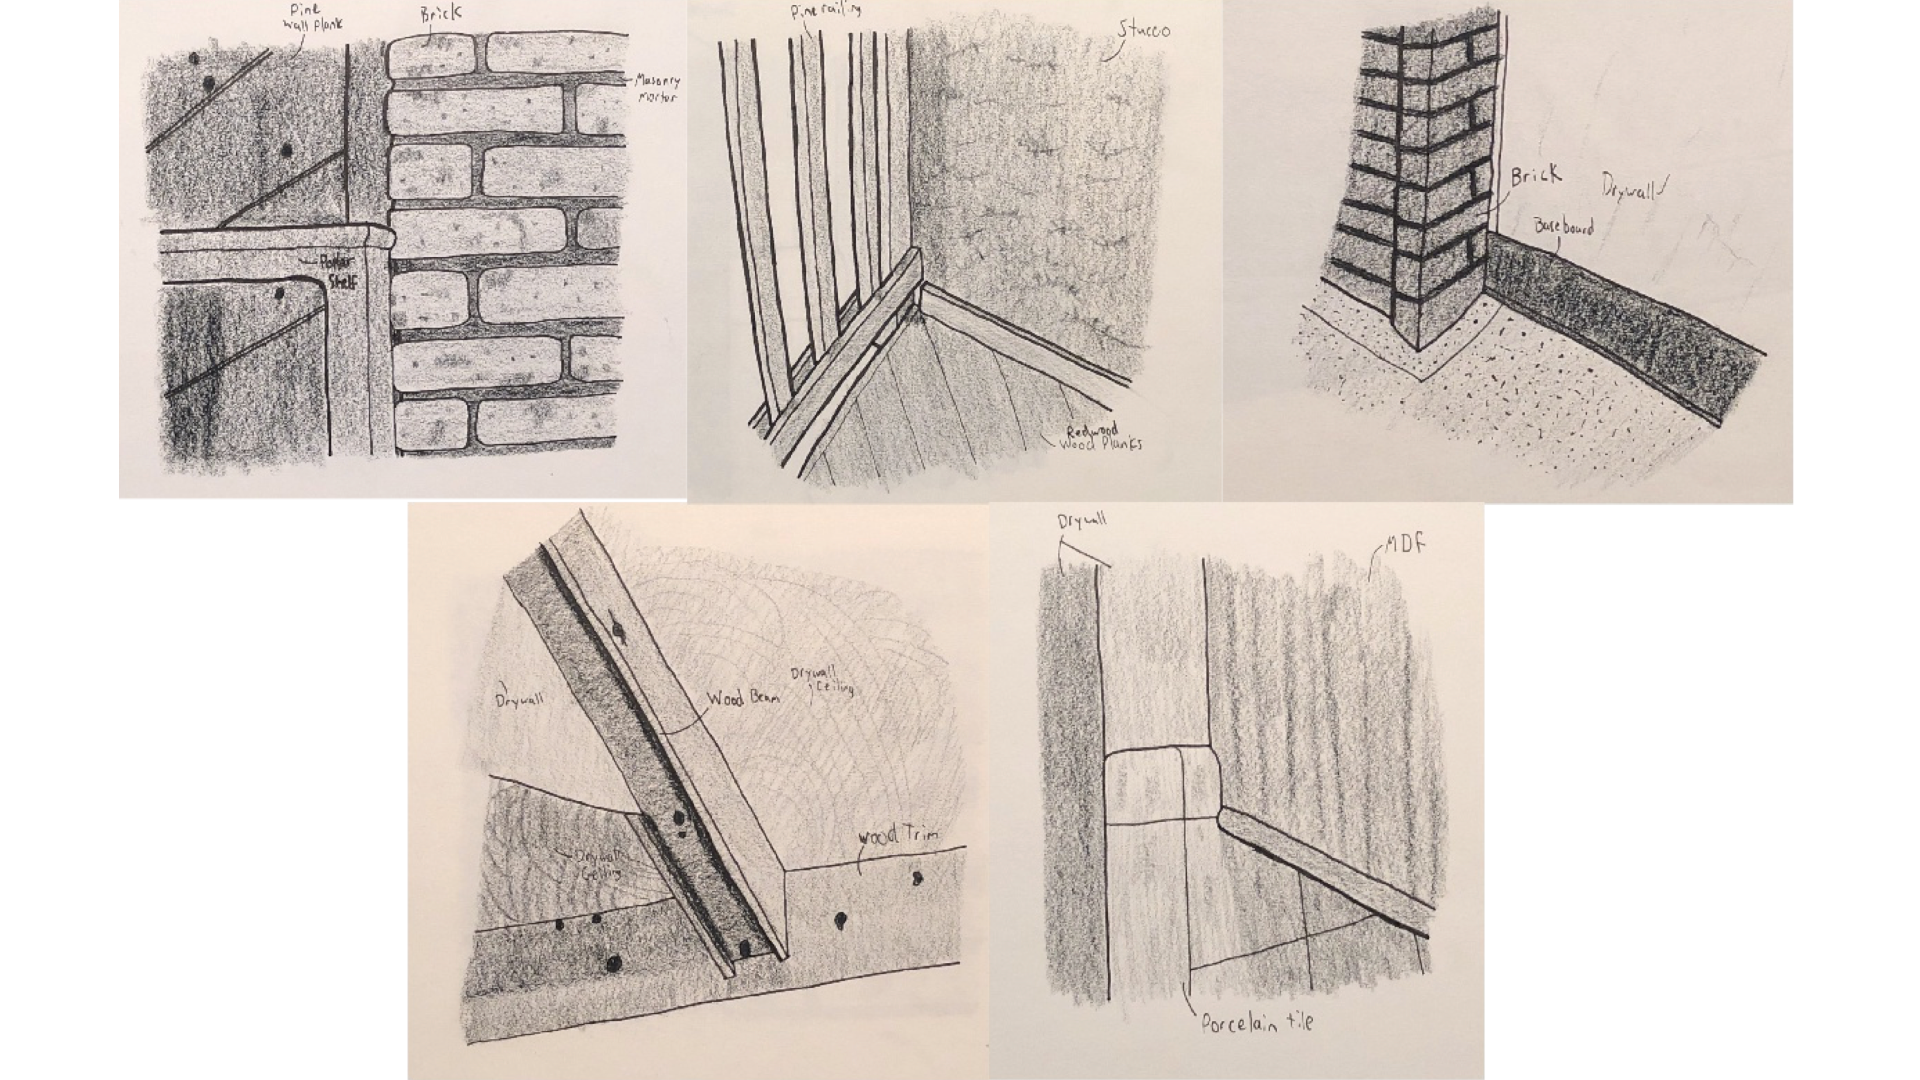 Pine
Wall Plank
Brick
Masonry
Mortar
Shelf
Pine railing
Stucco
Redwood
Wood Planks
Brick
Drywall
Baseboard
Drywall
Wood Beam
Drywall
Ceiling
Wood Trim
Drywall
Ceiling
Drywall
MDF
Porcelain tile